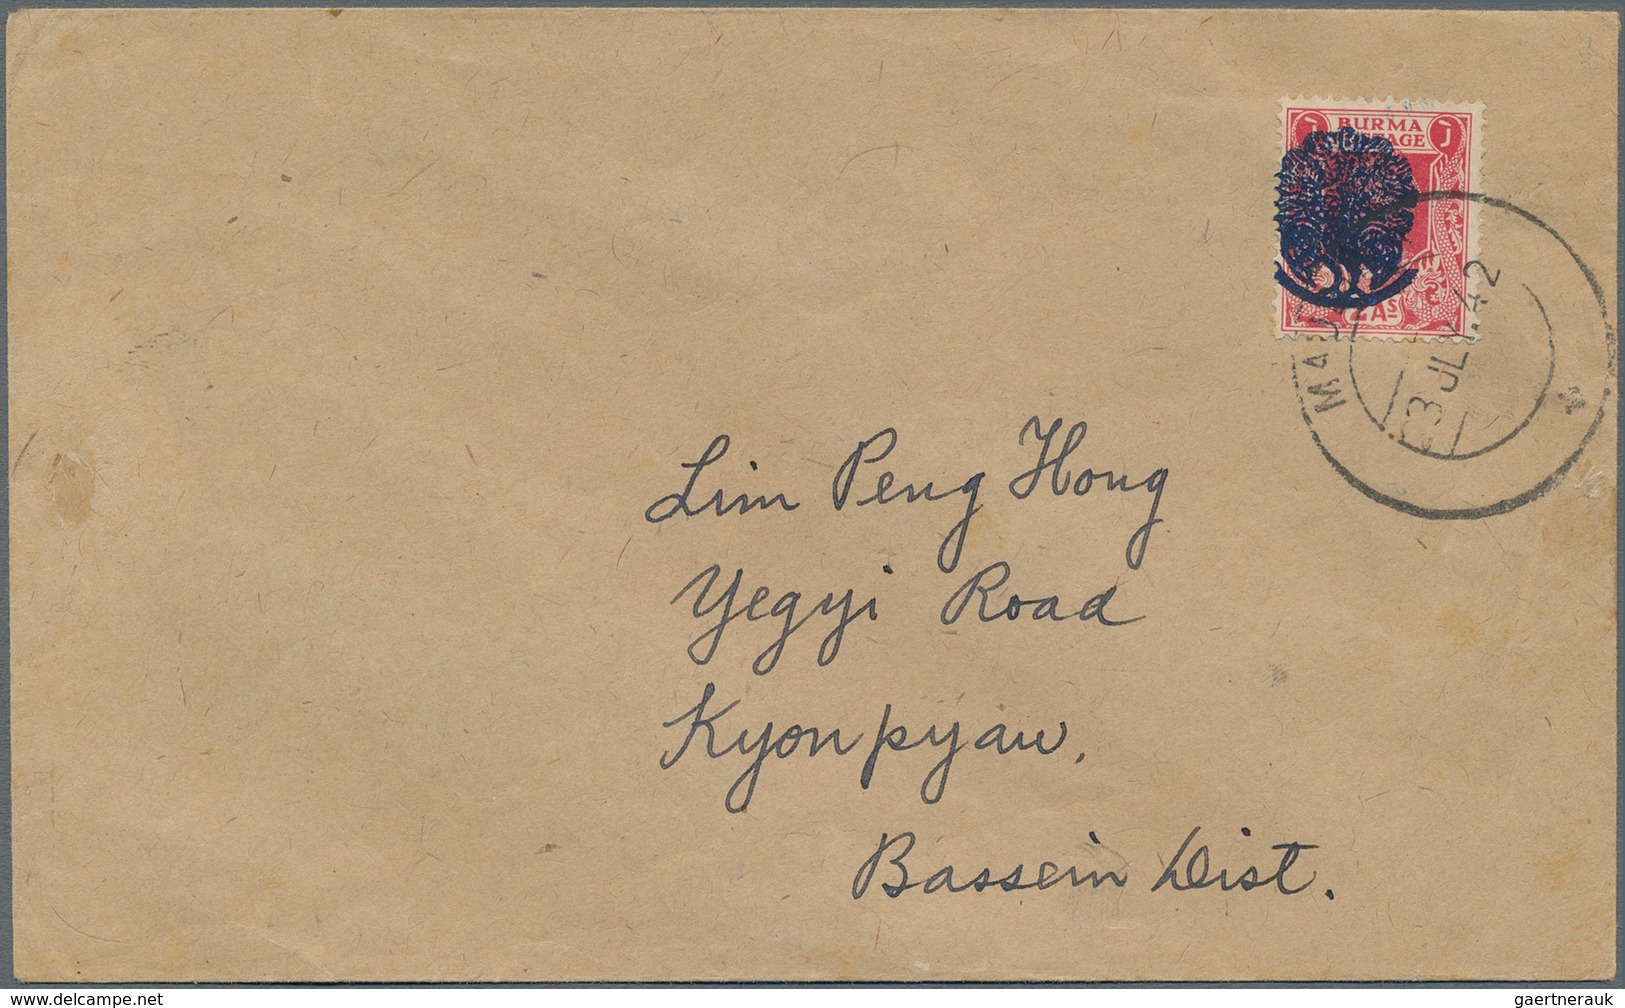 BURMA
2 As
JLY.42
Lim Peng Hong
Yegyi Road
Kyonpyaw,
Bassein Dist.
www.delcampe.net
gaertnerauk